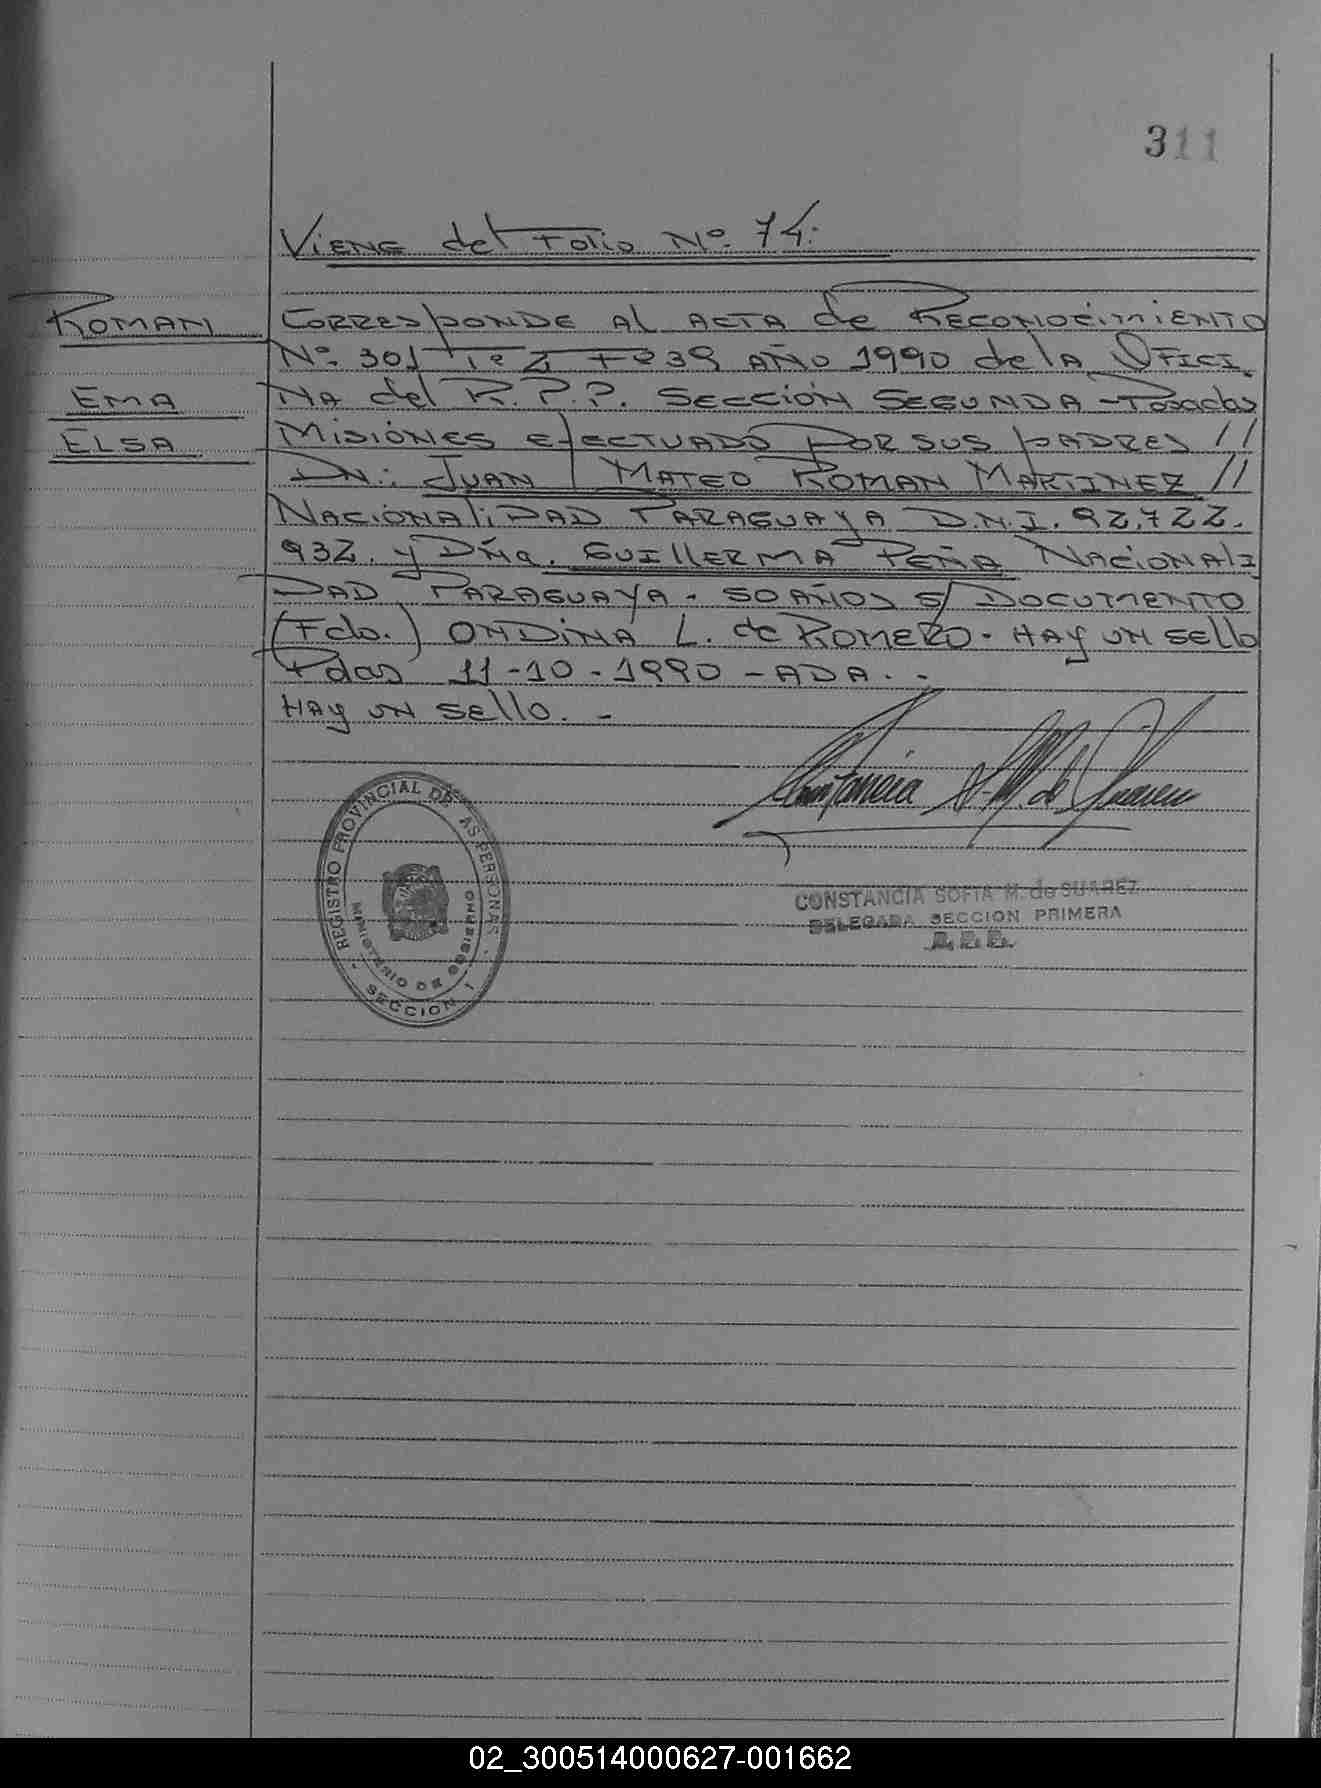 311
Viene del Folio Nº. 74.
ROMAN
EMA
ELSA
Corresponde al acta de Reconocimiento
Nº. 301 Tº 2 Fº 39 año 1990 de la Ofici
na del R.P.P. Sección Segunda - Posadas
Misiones efectuado por sus padres //
Dn.: Juan Mateo Roman Martinez //
Nacionalidad Paraguaya D.N.I. 92.722.
932. y Dña. Guillerma Peña Nacionali
dad Paraguaya. 50 años s/ Documento
(Fdo.) Ondina L. de Romero. Hay un sello
Pdas 11-10-1990 - ADA. -
Hay un sello. -
REGISTRO PROVINCIAL DE LAS PERSONAS
MINISTERIO DE GOBIERNO
SECCION 1
CONSTANCIA SOFIA M. de SUAREZ
DELEGADA SECCION PRIMERA
02_300514000627-001662